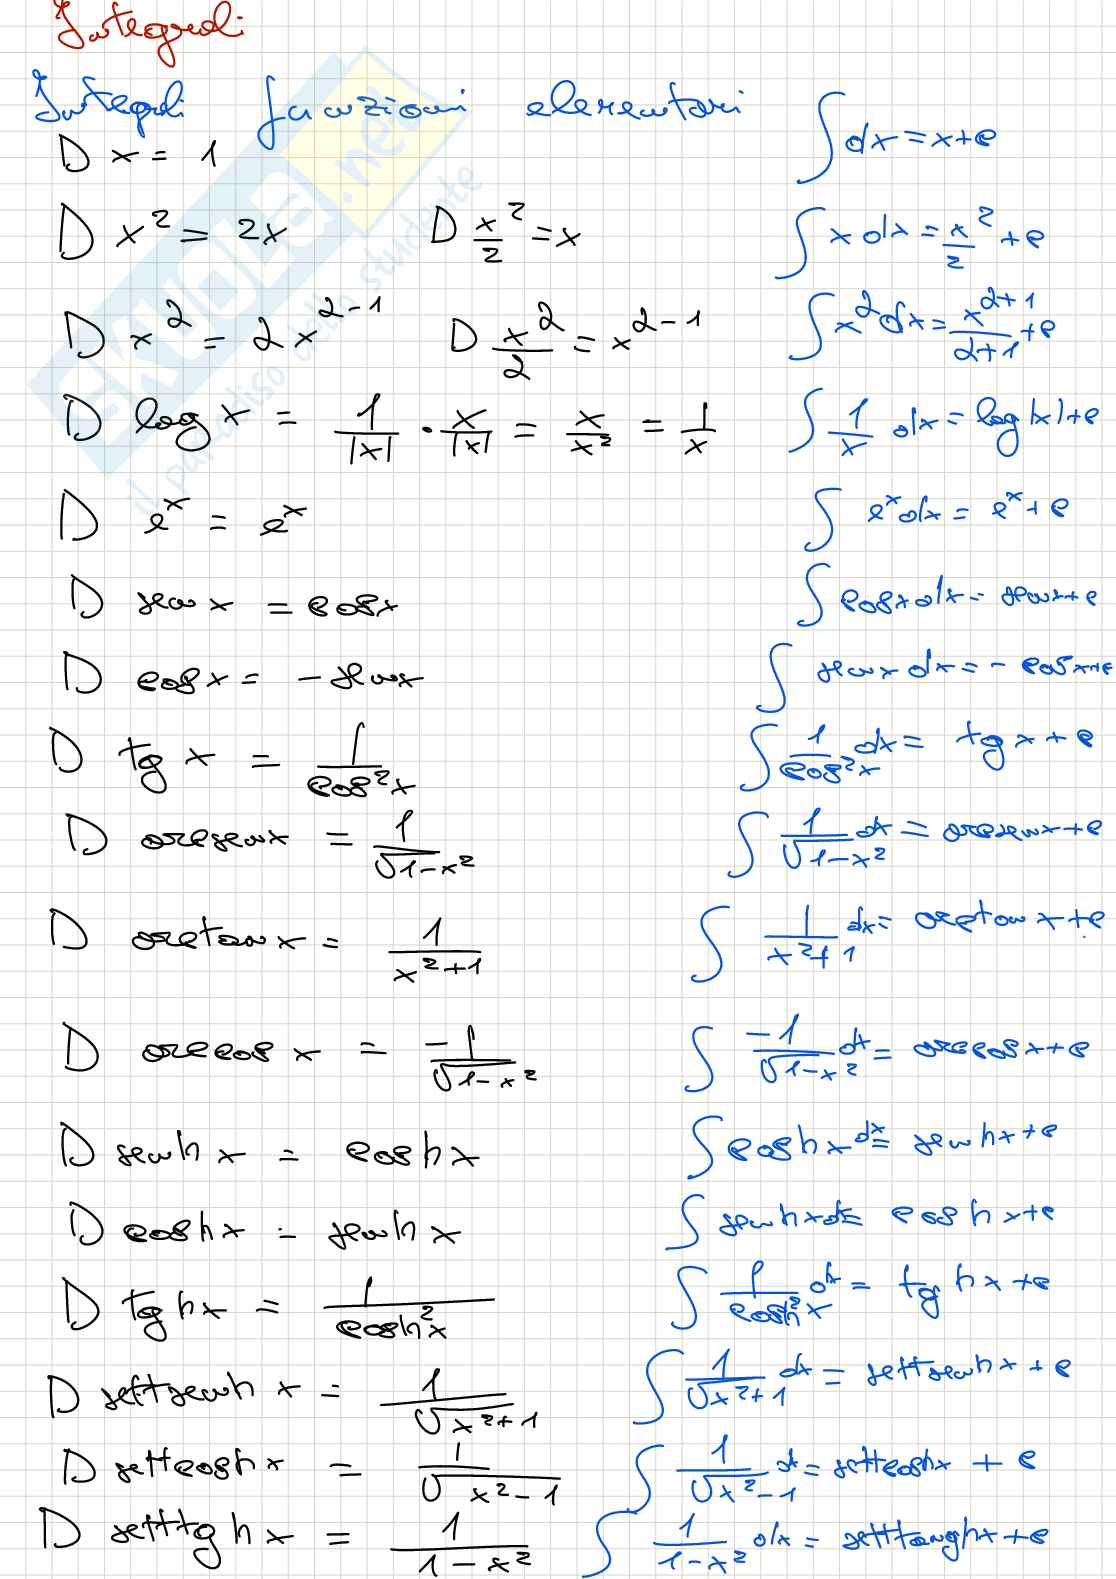 Integrali
Integrali funzioni elementari
D x = 1 ∫ dx = x + c
D x² = 2x D x²/2 = x ∫ x dx = x²/2 + c
D x^2 = 2x^(2-1) D x^2/2 = x^(2-1) ∫ x^2 dx = x^(2+1)/(2+1) + c
D log x = 1/|x| · x/|x| = x/x² = 1/x ∫ 1/x dx = log|x| + c
D e^x = e^x ∫ e^x dx = e^x + c
D sen x = cos x ∫ cos x dx = sen x + c
D cos x = - sen x ∫ sen x dx = - cos x + c
D tg x = 1/cos²x ∫ 1/cos²x dx = tg x + c
D arcsen x = 1/√(1-x²) ∫ 1/√(1-x²) dx = arcsen x + c
D arctan x = 1/(x²+1) ∫ 1/(x²+1) dx = arctan x + c
D arccos x = -1/√(1-x²) ∫ -1/√(1-x²) dx = arccos x + c
D senh x = cosh x ∫ cosh x dx = senh x + c
D cosh x = senh x ∫ senh x dx = cosh x + c
D tgh x = 1/cosh²x ∫ 1/cosh²x dx = tgh x + c
D settsenh x = 1/√(x²+1) ∫ 1/√(x²+1) dx = settsenh x + c
D settcosh x = 1/√(x²-1) ∫ 1/√(x²-1) dx = settcosh x + c
D setttgh x = 1/(1-x²) ∫ 1/(1-x²) dx = setttangh x + c
SKUOLA.net
il paradiso dello studente